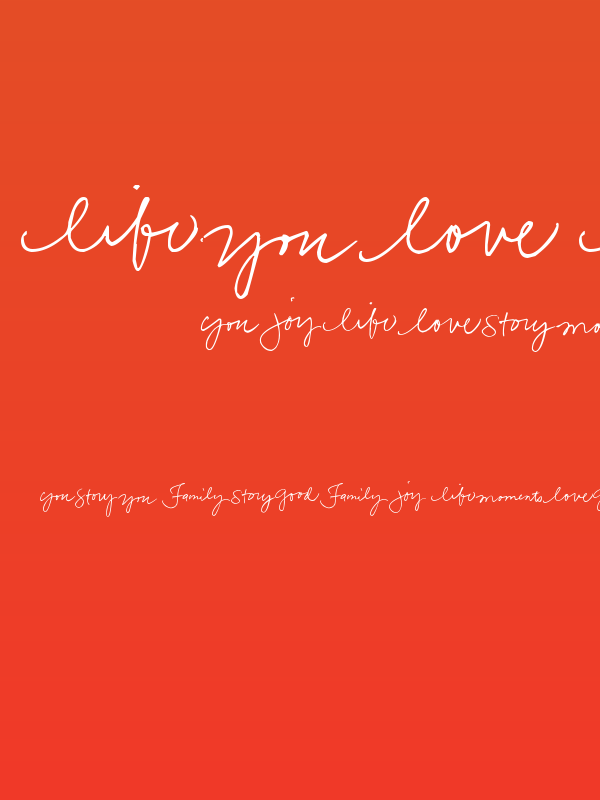 life you love
you joy life love story mo
you story you Family story good Family joy life moments love